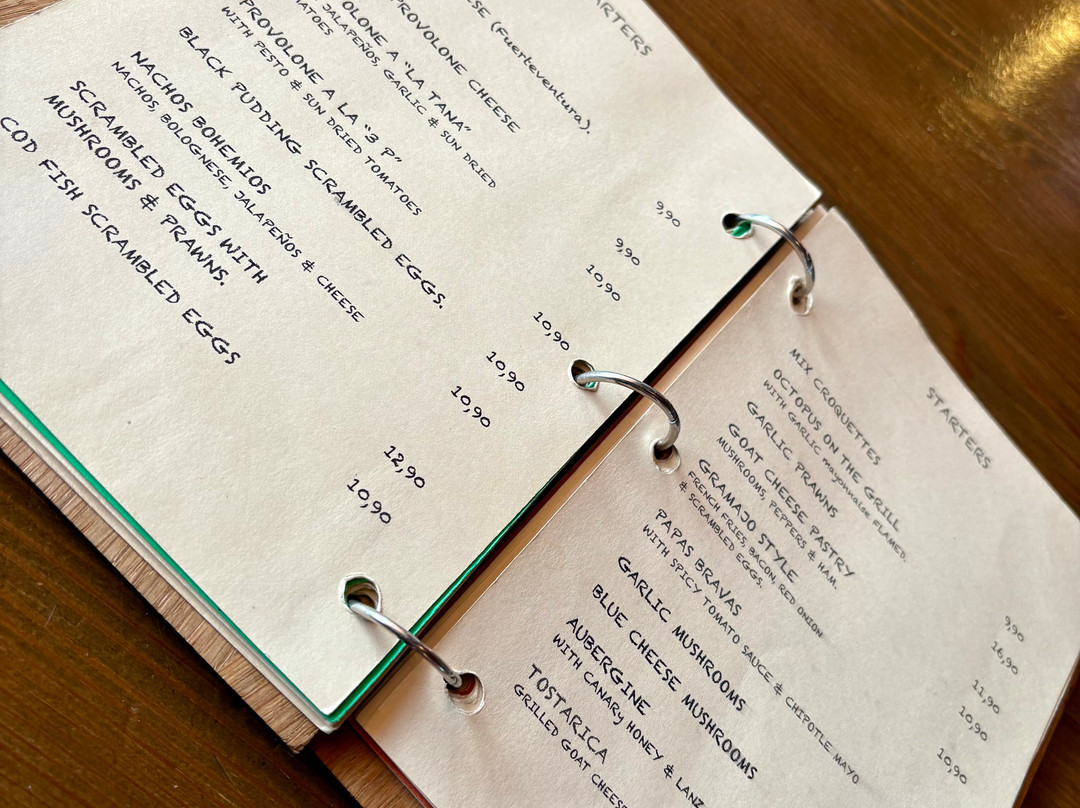 ARTERS
SE (Fuerteventura). 9,90
PROVOLONE CHEESE 9,90
OLONE A "LA TANA" 10,90
JALAPEÑOS, GARLIC & SUN DRIED
ATOES
PROVOLONE A LA "3 P" 10,90
WITH PESTO & SUN DRIED TOMATOES
BLACK PUDDING SCRAMBLED EGGS. 10,90
NACHOS BOHEMIOS 10,90
NACHOS, BOLOGNESE, JALAPEÑOS & CHEESE
SCRAMBLED EGGS WITH
MUSHROOMS & PRAWNS. 12,90
COD FISH SCRAMBLED EGGS 10,90
STARTERS
MIX CROQUETTES 9,90
OCTOPUS ON THE GRILL 16,90
WITH GARLIC mayonnaise FLAMED.
GARLIC PRAWNS 11,90
GOAT CHEESE PASTRY 10,90
MUSHROOMS, PEPPERS & HAM.
GRAMAJO STYLE 10,90
FRENCH FRIES, BACON, RED ONION
& SCRAMBLED EGGS.
PAPAS BRAVAS
WITH SPICY TOMATO SAUCE & CHIPOTLE MAYO
GARLIC MUSHROOMS
BLUE CHEESE MUSHROOMS
AUBERGINE
WITH CANARY HONEY & LANZ
TOSTARICA
GRILLED GOAT CHEESE